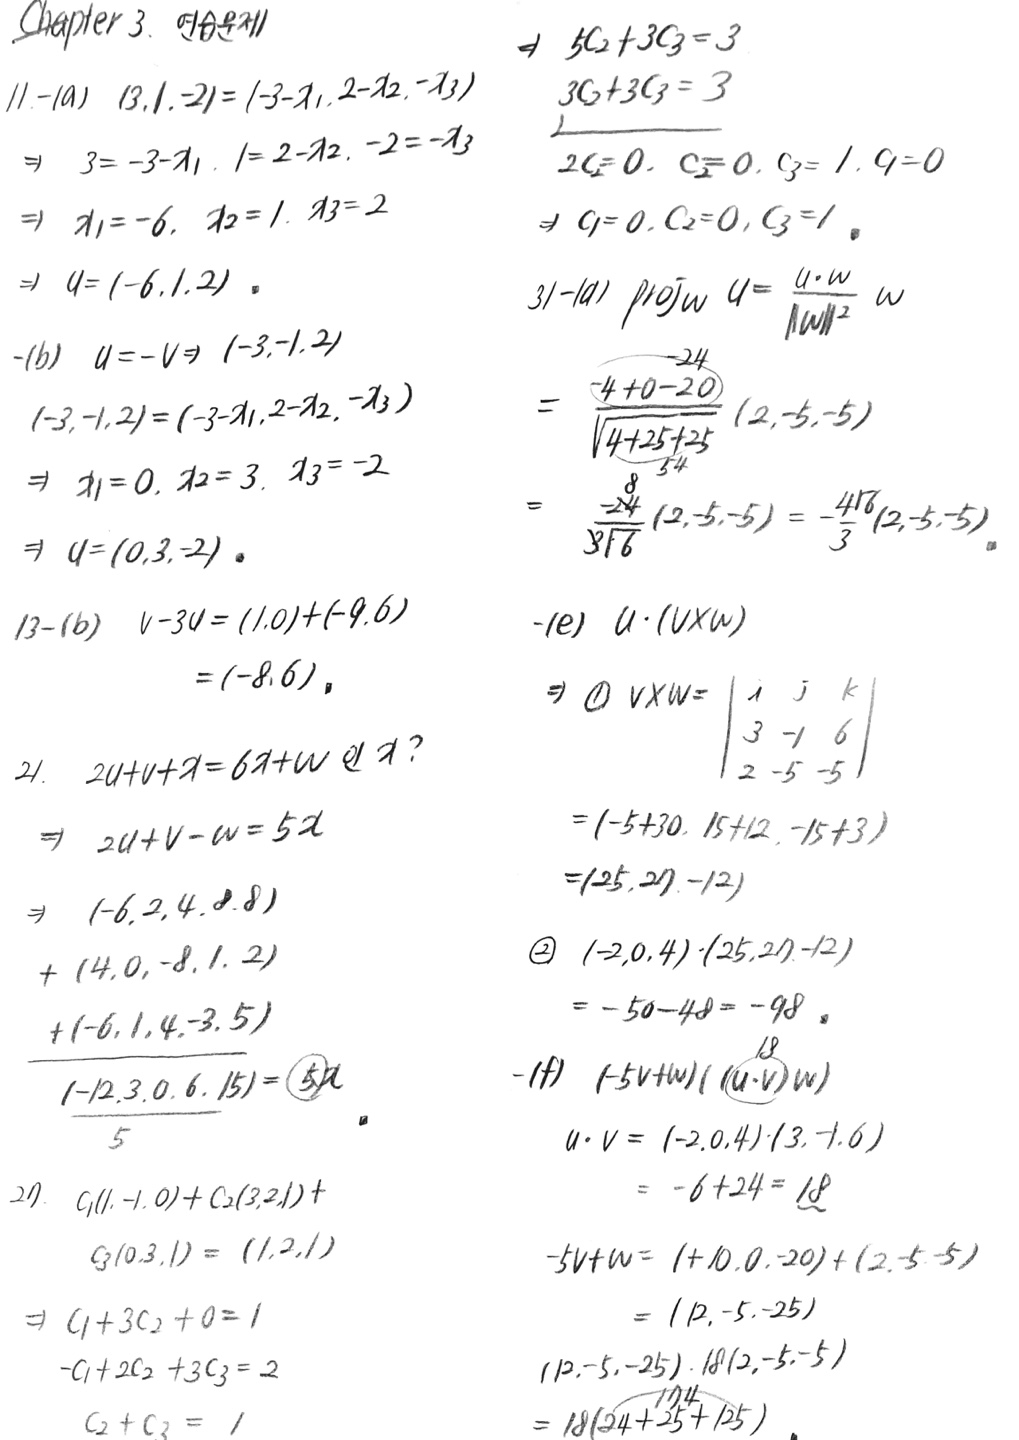 Chapter 3. 연습문제
11.-(a) (3,1,-2)=(-3-x₁, 2-x₂, -x₃)
⇒ 3=-3-x₁, 1=2-x₂, -2=-x₃
⇒ x₁=-6, x₂=1, x₃=2
⇒ u=(-6,1,2).
-(b) u=-v⇒ (-3,-1,2)
(-3,-1,2)=(-3-x₁,2-x₂,-x₃)
⇒ x₁=0, x₂=3, x₃=-2
⇒ u=(0,3,-2).
13-(b) v-3u=(1,0)+(-9,6)
=(-8,6).
21. 2u+v+x=6x+w 인 x?
⇒ 2u+v-w=5x
⇒ (-6,2,4,8,8)
+(4,0,-8,1,2)
+(-6,1,4,-3,5)
(-12,3,0,6,15)=5x
5
27. c₁(1,-1,0)+c₂(3,2,1)+
c₃(0,3,1)=(1,2,1)
⇒ c₁+3c₂+0=1
-c₁+2c₂+3c₃=2
c₂+c₃=1
⇒ 5c₂+3c₃=3
3c₂+3c₃=3
2c₂=0, c₂=0, c₃=1, c₁=0
⇒ c₁=0, c₂=0, c₃=1.
31-(a) proj_w u= u·w/‖w‖² w
-24
= -4+0-20/√4+25+25 (2,-5,-5)
54
8
= -24/3√6 (2,-5,-5) = -4√6/3 (2,-5,-5).
-(e) u·(v×w)
⇒ ① v×w= | i j k
3 -1 6
2 -5 -5 |
=(-5+30, 15+12, -15+3)
=(25,27,-12)
② (-2,0,4)·(25,27,-12)
=-50-48=-98.
18
-(f) (-5v+w)((u·v)w)
u·v=(-2,0,4)·(3,-1,6)
=-6+24=18
-5v+w=(+10,0,-20)+(2,-5,-5)
=(12,-5,-25)
(12,-5,-25)·18(2,-5,-5)
174
=18(24+25+125).